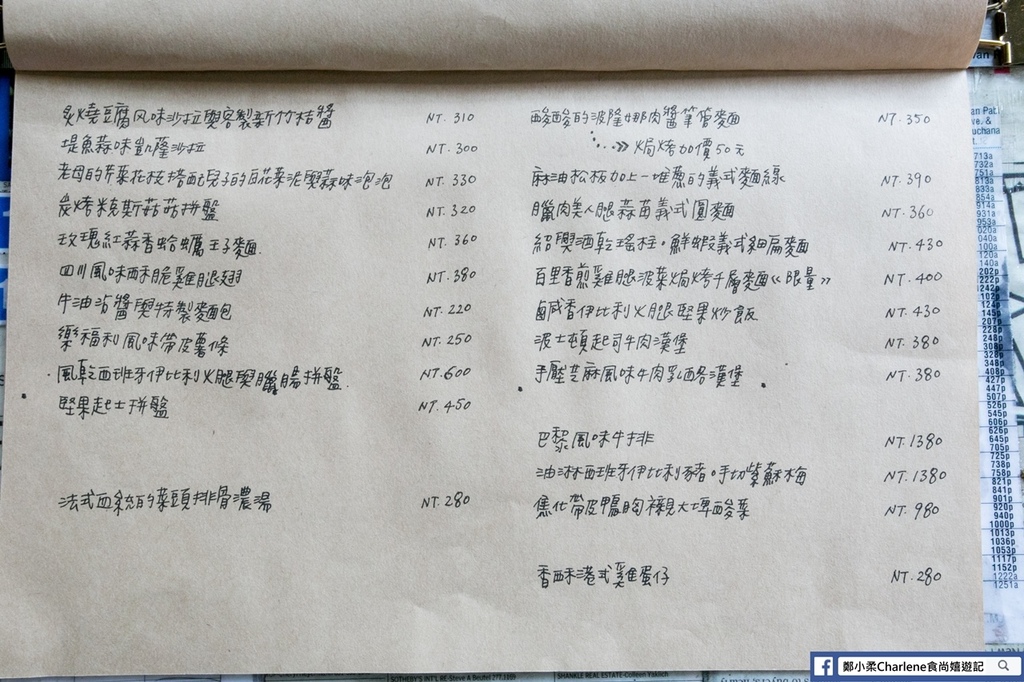 炙燒豆腐风味沙拉與客製新竹桔醬 NT. 310
堤魚蒜味凱薩沙拉 NT. 300
老母的芥菜花枝塔配兒子的白花菜泥與蒜味泡泡 NT. 330
炭烤烤斯菇菇拼盤 NT. 320
玫瑰紅蒜香蛤蠣王子麵 NT. 360
四川風味酥脆雞腿翅 NT. 380
牛油沾醬與特製麵包 NT. 220
樂福利風味帶皮薯條 NT. 250
風乾西班牙伊比利火腿與臘腸拼盤 NT. 600
堅果起士拼盤 NT. 450
法式血統的菜頭排骨濃湯 NT. 280
酸酸的波隆娜肉醬筆管麵 NT. 350
焗烤加價50元
麻油松板加上一堆蔥的義式麵線 NT. 390
臘肉美人腿蒜苗義式圓麵 NT. 360
紹興酒乾瑤柱。鮮蝦義式細扁麵 NT. 430
百里香煎雞腿菠菜焗烤千層麵《限量》 NT. 400
鹹香伊比利火腿堅果炒飯 NT. 430
波士頓起司牛肉漢堡 NT. 380
手壓芝麻風味牛肉乳酪漢堡 NT. 380
巴黎風味牛排 NT. 1380
油淋西班牙伊比利豬。手切紫蘇梅 NT. 1380
焦化帶皮鴨胸襯大埤酸菜 NT. 980
香酥港式雞蛋仔 NT. 280
鄭小柔Charlene食尚嬉遊記